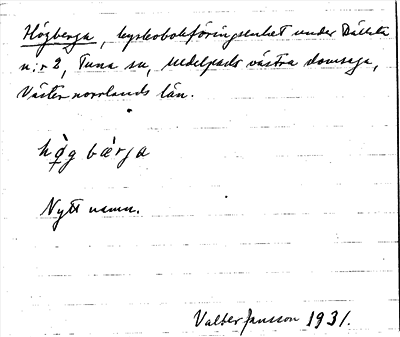 Högberga, kyrkobokföringsenhet under Dällsta
n:r 2, Tuna sn, Medelpads västra domsaga,
Västernorrlands län.
hø̀g bæ̀rja
Nytt namn.
Valter Jansson 1931.